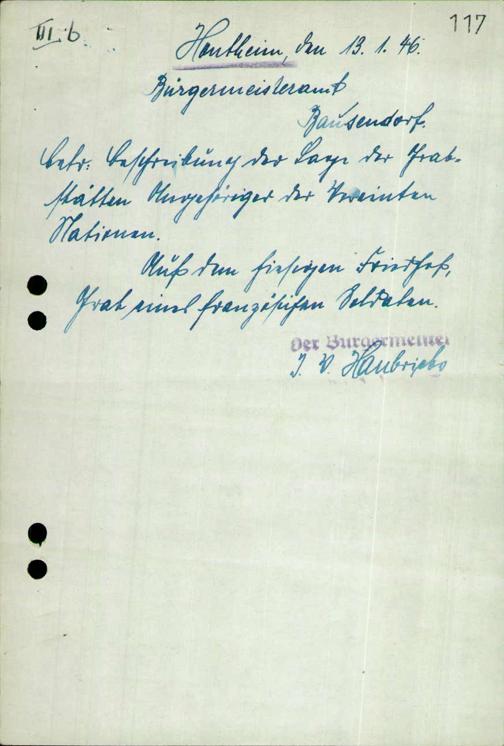 III. b.
117
Hontheim, den 13.1.46.
Bürgermeisteramt
Bausendorf.
betr: Beschreibung der Lage der Grab-
stätten Angehöriger der Vereinten
Nationen.
Auf dem hiesigen Friedhof,
Grab eines französischen Soldaten.
Der Bürgermeister
I. V. Haubrichs